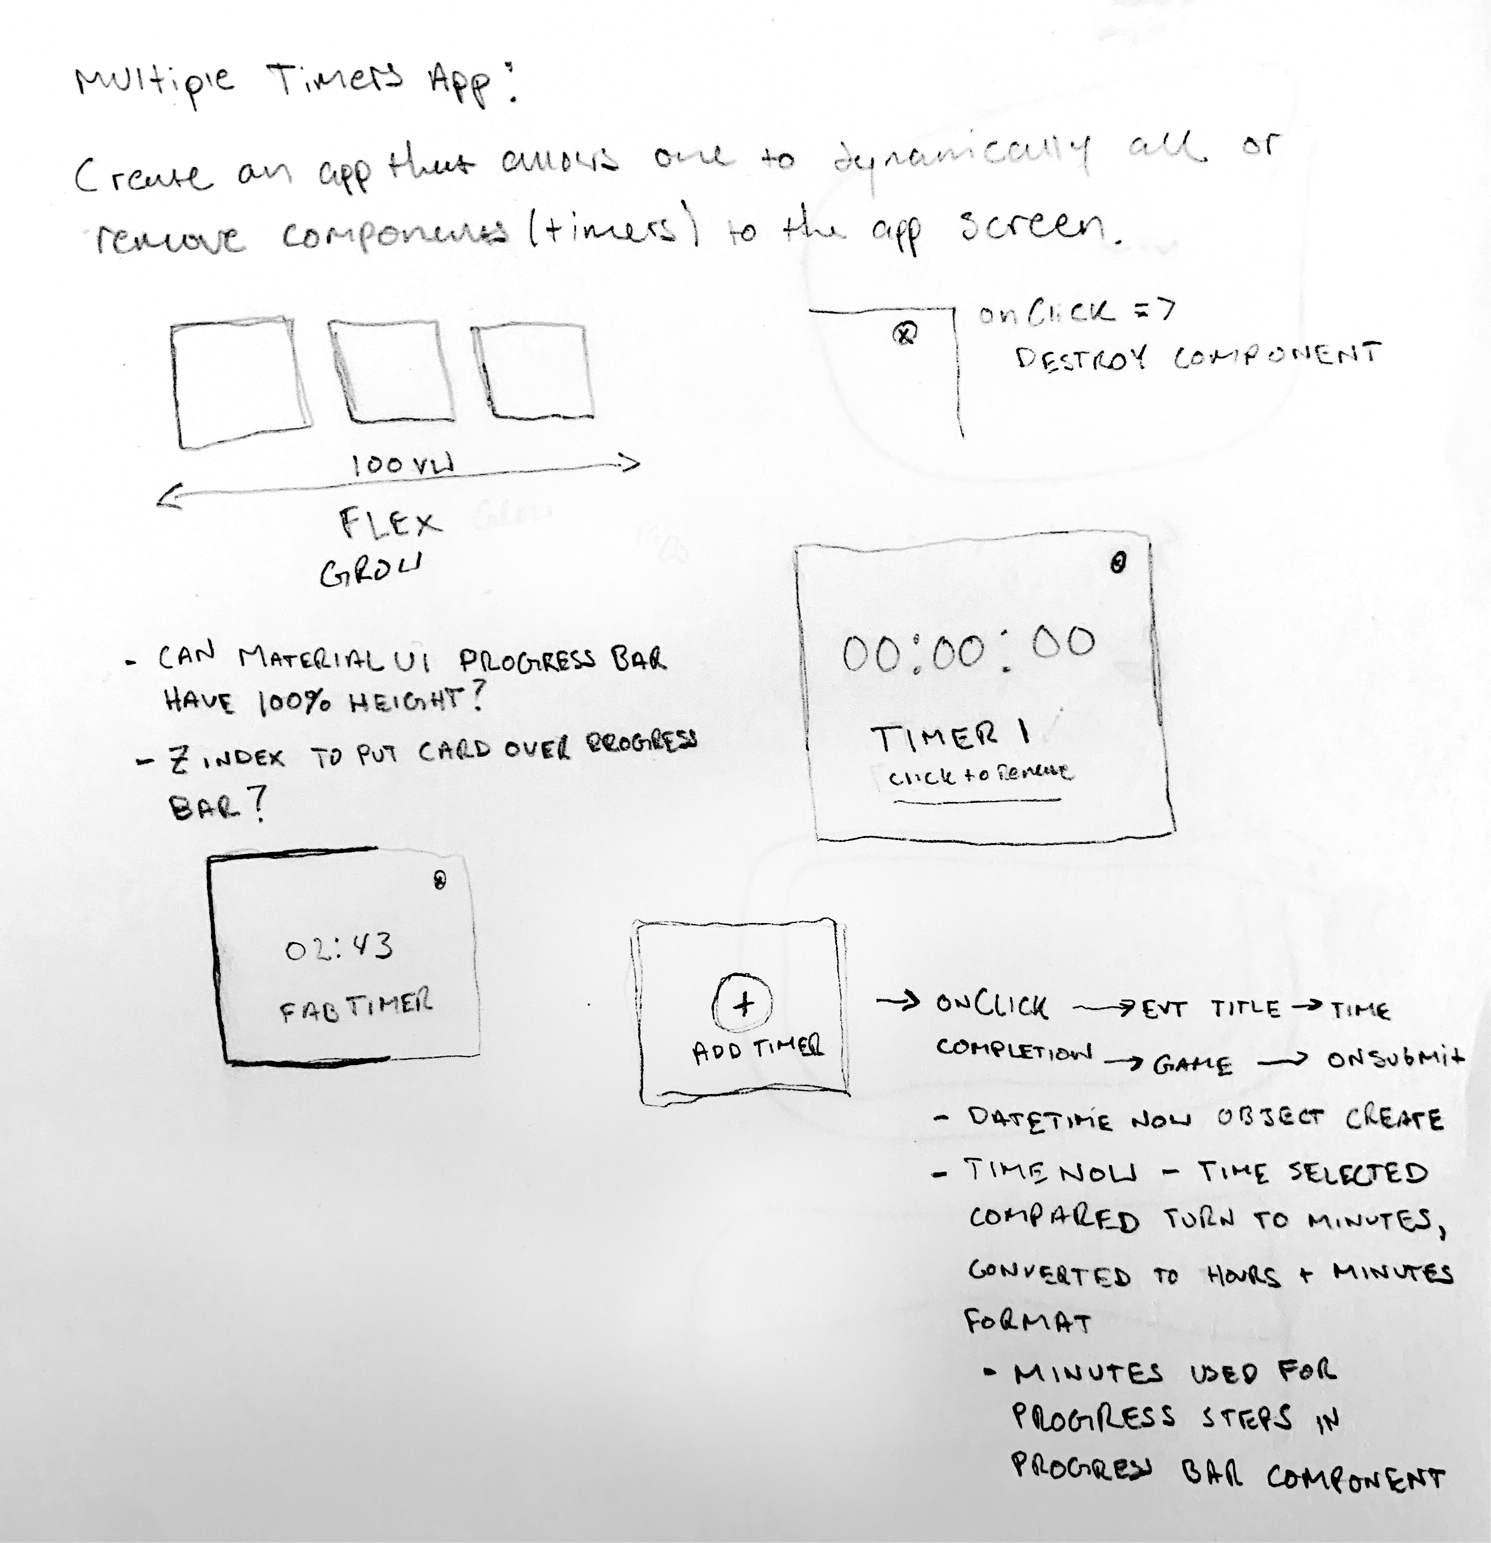 Multiple Timers App:
Create an app that allows one to dynamically add or
remove components (timers) to the app screen.
onClick =>
DESTROY COMPONENT
100 VW
FLEX
GROW
- CAN MATERIAL UI PROGRESS BAR
HAVE 100% HEIGHT?
- Z INDEX TO PUT CARD OVER PROGRESS
BAR?
00:00:00
TIMER 1
click to remove
02:43
FAB TIMER
+
ADD TIMER
→ ONCLICK → EVT TITLE → TIME
COMPLETION → GAME → ONSUBMIT
- DATETIME NOW OBJECT CREATE
- TIME NOW - TIME SELECTED
COMPARED TURN TO MINUTES,
CONVERTED TO HOURS + MINUTES
FORMAT
- MINUTES USED FOR
PROGRESS STEPS IN
PROGRESS BAR COMPONENT